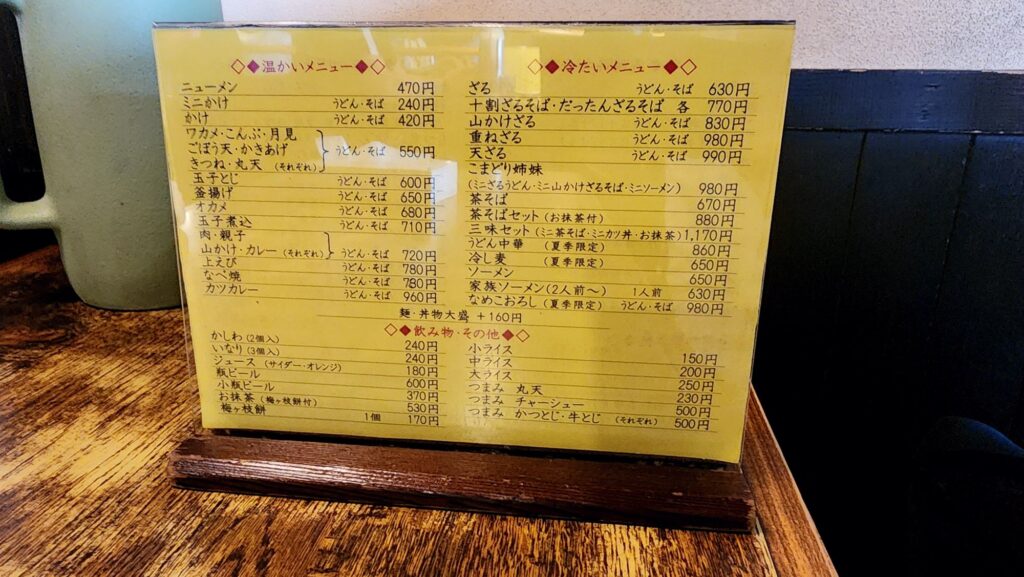 ◇◆温かいメニュー◆◇
ニューメン 470円
ミニかけ うどん・そば 240円
かけ うどん・そば 420円
ワカメ・こんぶ・月見
ごぼう天・かきあげ うどん・そば 550円
きつね・丸天 (それぞれ)
玉子とじ うどん・そば 600円
釜揚げ うどん・そば 650円
オカメ うどん・そば 680円
玉子煮込 うどん・そば 710円
肉・親子
山かけ・カレー (それぞれ) うどん・そば 720円
上えび うどん・そば 780円
なべ焼 うどん・そば 780円
カツカレー うどん・そば 960円
◇◆冷たいメニュー◆◇
ざる うどん・そば 630円
十割ざるそば・だったんざるそば 各 770円
山かけざる うどん・そば 830円
重ねざる うどん・そば 980円
天ざる うどん・そば 990円
こまどり姉妹
(ミニざるうどん・ミニ山かけざるそば・ミニソーメン) 980円
茶そば 670円
茶そばセット (お抹茶付) 880円
三味セット (ミニ茶そば・ミニカツ丼・お抹茶) 1,170円
うどん中華 (夏季限定) 860円
冷し麦 (夏季限定) 650円
ソーメン 650円
家族ソーメン (2人前〜) 1人前 630円
なめこおろし (夏季限定) うどん・そば 980円
麺・丼物大盛 +160円
◇◆飲み物・その他◆◇
かしわ (2個入) 240円
いなり (3個入) 240円
ジュース (サイダー・オレンジ) 180円
瓶ビール 600円
小瓶ビール 370円
お抹茶 (梅ヶ枝餅付) 530円
梅ヶ枝餅 1個 170円
小ライス 150円
中ライス 200円
大ライス 250円
つまみ 丸天 230円
つまみ チャーシュー 500円
つまみ かつとじ・牛とじ (それぞれ) 500円